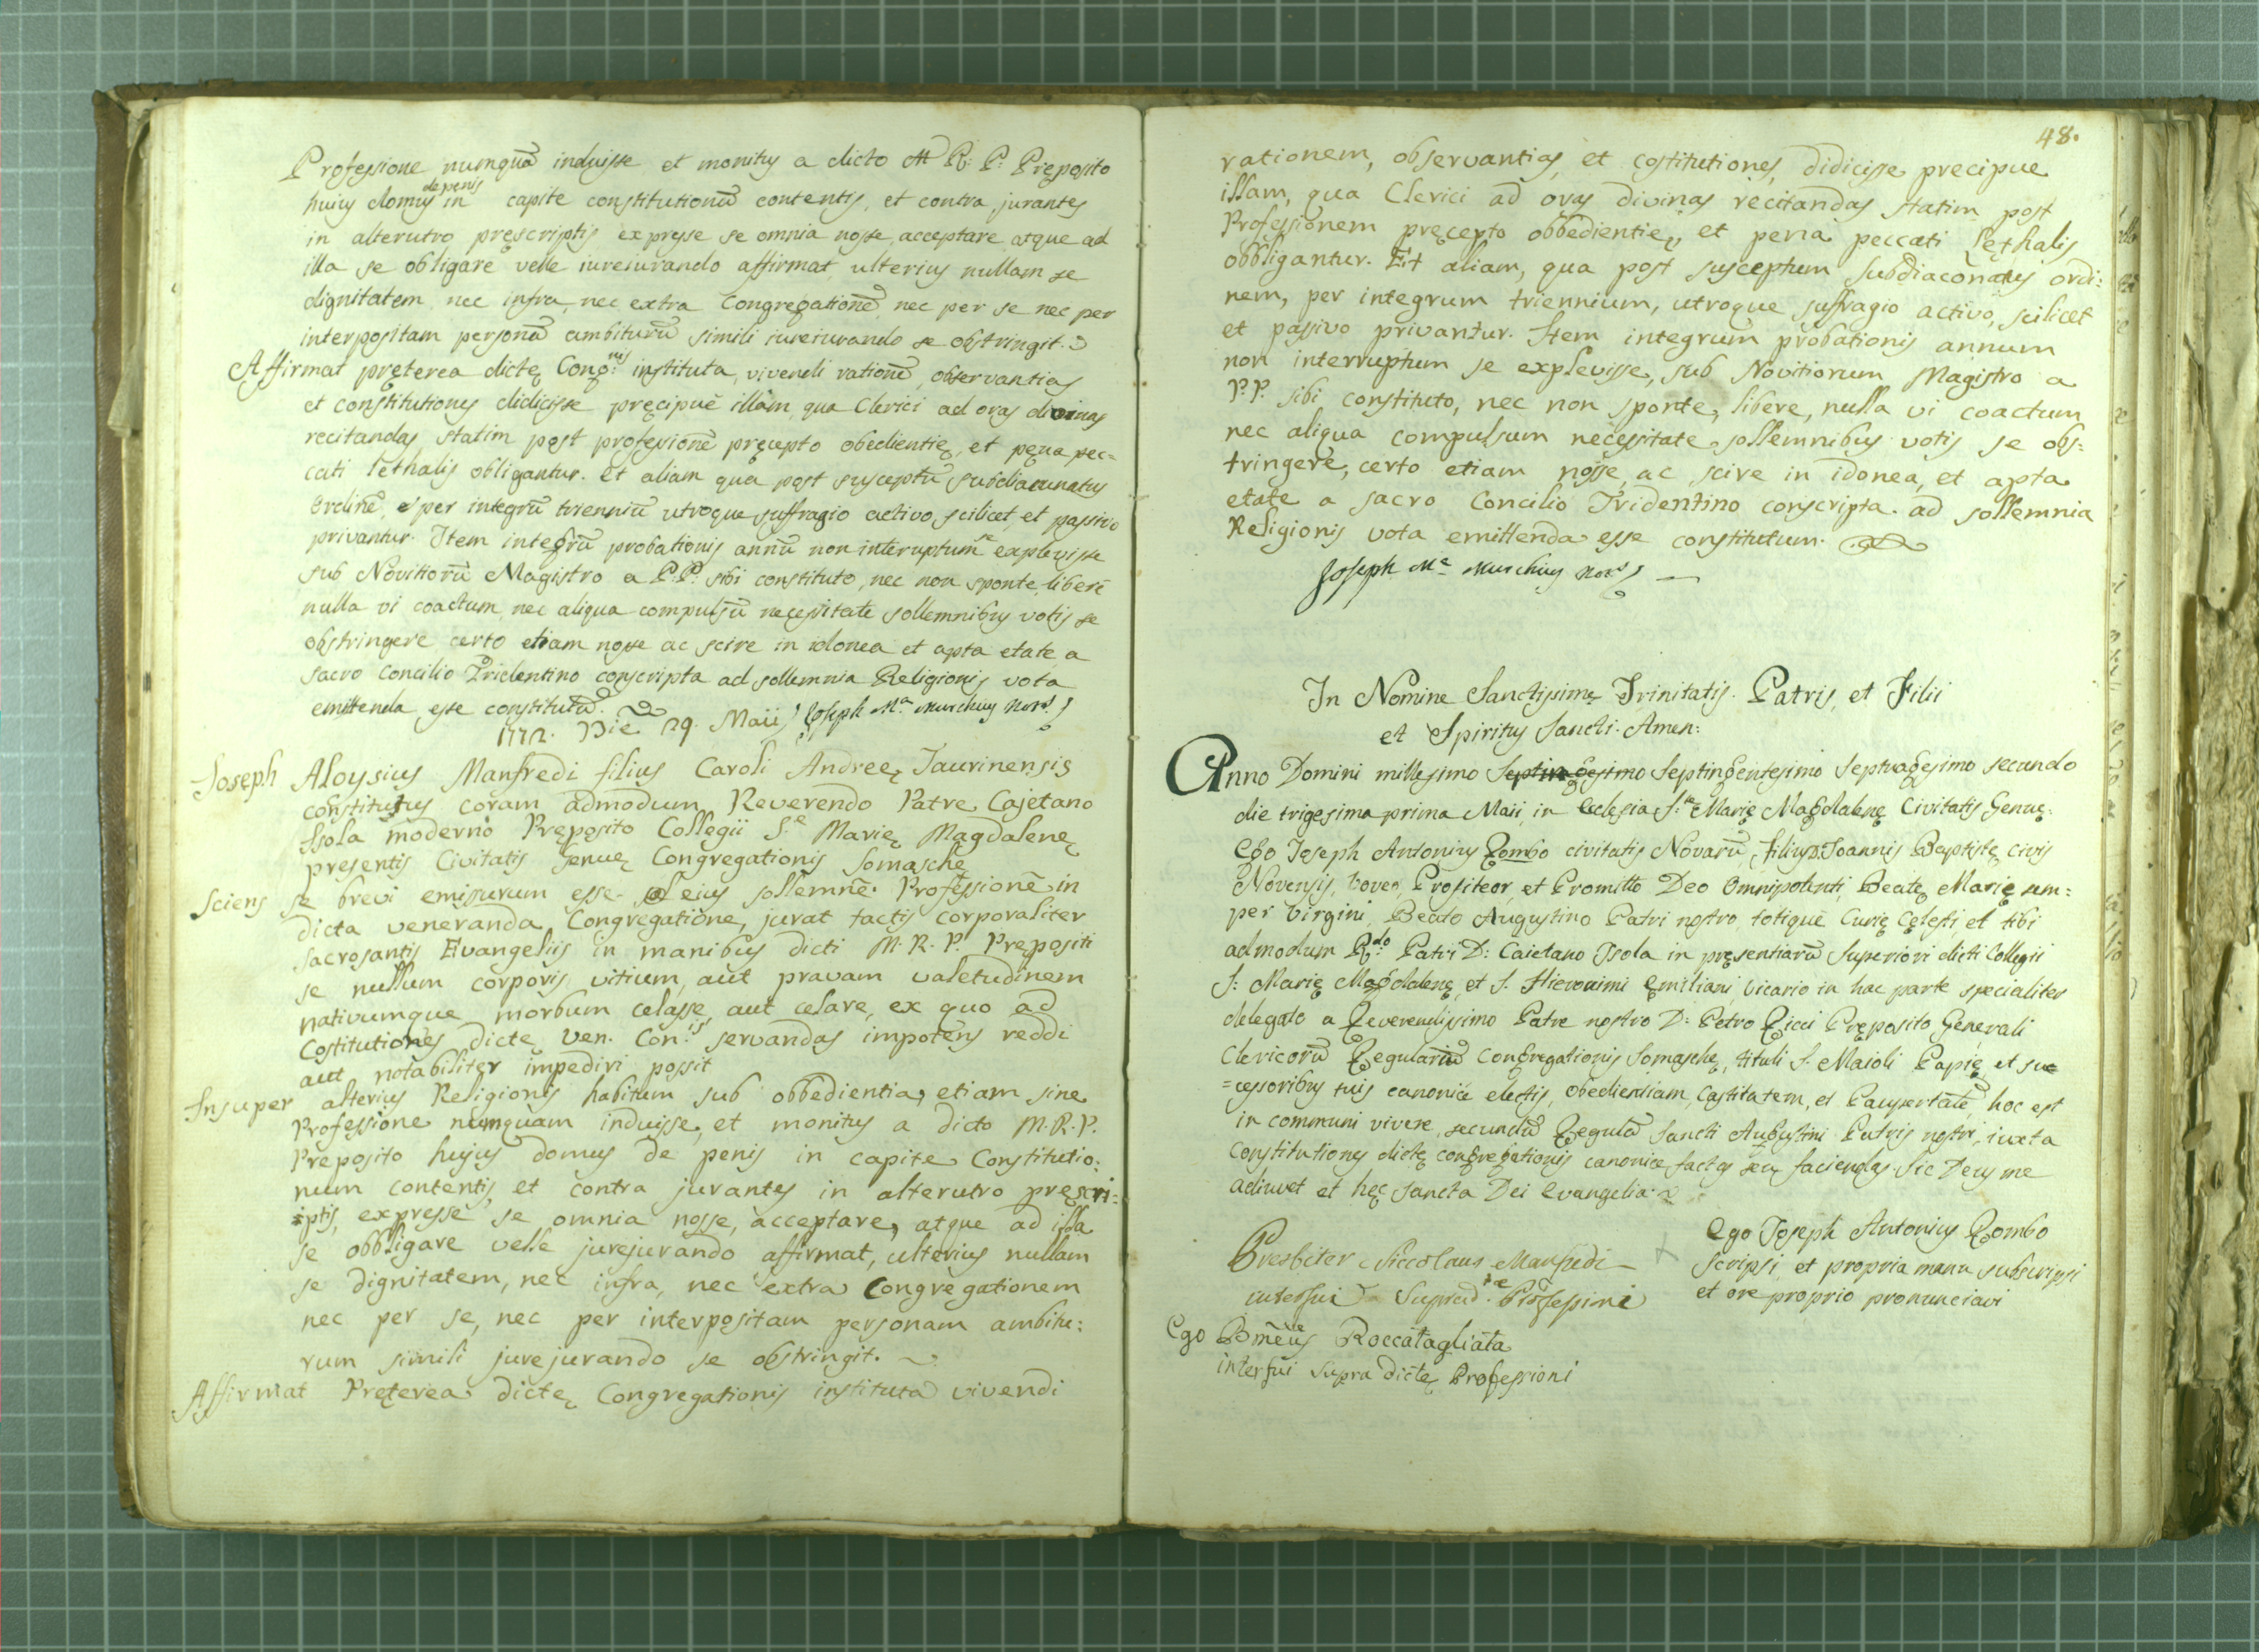 Professione numquā induisse et monitus a dicto M R: P: Pręposito
huius domus de penis in capite constitutionū contentis, et contra jurantes
in alterutro pręscriptis expresse se omnia nosse, acceptare, atque ad
illa se obligare velle iureiurando affirmat ulterius nullam se
dignitatem nec infra, nec extra Congregationē nec per se nec per
interpositam personā ambiturū simili iureiurando se obstringit.
Affirmat pręterea dictę Cong:nis instituta, vivendi rationē, observantias
et constitutiones didicisse pręcipuè illam, qua Clerici ad oras divinas
recitandas statim post professionē pręcepto obedientię, et pęna pec=
cati lethalis obligantur. Et aliam qua post susceptū subdiaconatus
Ordinē, per integrū trienniū utroque suffragio activo scilicet, et passivo
privantur. Item integrū probationis annū non interuptum se explevisse
sub Novitiorū Magistro a P.P. sibi constituto, nec non sponte, liberè
nulla vi coactum, nec aliqua compulsū necessitate sollemnibus votis se
obstringere certo etiam nosse ac scire in idonea et apta etate a
sacro Concilio Tridentino conscripta ad sollemnia Religionis vota
emittenda esse constitutū. Joseph M.a Murchius Nov.s
1772. Die 29. Maii
Joseph Aloysius Manfredi filius Caroli Andreę Taurinensis
constitutus coram admodum Reverendo Patre Cajetano
Isola moderno Pręposito Collegii S.e Marię Magdalenę
presentis Civitatis Genuę Congregationis Somaschę
Sciens se brevi emissurum esse eius sollemnē Professionē in
dicta veneranda Congregatione, jurat tactis corporaliter
sacrosantis Evangeliis in manibus dicti M. R. P. Prepositi
se nullum corporis vitium, aut pravam valetudinem
nativumque morbum celasse, aut celare, ex quo ad
Costitutiones dictę Ven. Con.is servandas impotens reddi
aut notabiliter impediri possit
Insuper alterius Religionis habitum sub obbedientia, etiam sine
Professione numquam induisse, et monitus a dicto M. R. P.
Preposito hujus domus de penis in capite Constitutio:
num contentis, et contra jurantes in alterutro pręscri=
iptis, expresse se omnia nosse, acceptare, atque ad illa
se obbligare velle jurejurando affirmat, ulterius nullam
se dignitatem, nec infra, nec extra Congregationem
nec per se, nec per interpositam personam ambitu:
rum simili jurejurando se obstringit.
Affirmat Pręterea dictę Congregationis instituta vivendi
48.
rationem, observantias, et costitutiones, didicisse precipue
illam, qua Clerici ad oras divinas recitandas statim post
Professionem pręcepto obbedientię, et pena peccati lęthalis
obbligantur. Et aliam, qua post susceptum subdiaconatus ordi:
nem, per integrum triennium, utroque suffragio activo, scilicet
et passivo privantur. Item integrum probationis annum
non interruptum se explevisse, sub Novitiorum Magistro a
P.P. sibi constituto, nec non sponte, libere, nulla vi coactum
nec aliqua compulsum necessitate sollemnibus votis se obs=
tringere, certo etiam nosse, ac scire in idonea, et apta
etate a sacro Concilio Tridentino conscripta ad sollemnia
Religionis vota emittenda esse constitutum.
Joseph M.a Murchius Nov.s
In Nomine Sanctissimę Trinitatis Patris, et Filii
et Spiritus Sancti. Amen:
Anno Domini millesimo Septingesimo Septingentesimo Septuagesimo secundo
die trigesima prima Maii, in Eclesia S.te Marię Magdalenę Civitatis Genuę.
Ego Joseph Antonius Rombo civitatis Novarū, filius D. Joannis Baptistę civis
Novensis, voveo, Profiteor, et Promitto Deo Omnipotenti, Beatę Marię sem=
per Virgini, Beato Augustino Patri nostro, totique Curię Cęlesti et tibi
admodum R.do Patri D: Caietano Isola in pręsentiarū Superiori dicti Collegii
S: Marię Magdalenę, et S. Hieronimi Emiliani, Vicario in hac parte specialiter
delegato a Reverendissimo Patre nostro D: Petro Ricci Pręposito Generali
Clericorū Regulariū Congregationis Somaschę, tituli S. Maioli Papię, et suc
=cessoribus tuis canonicè electis, obedientiam, Castitatem, et Paupertatē, hoc est
in communi vivere, secundū Regulā Sancti Augustini Patris nostri, iuxta
Constitutiones dictę congregationis canonicè factas seu faciendas. Sic Deus me
adiuvet et hęc sancta Dei Evangelia.
Presbiter Niccolaus Manfredi
interfui Suprad.tæ Professioni
Ego Joseph Antonius Rombo
scripsi, et propria manu subscripsi
et ore proprio pronunciavi
Ego Bmeus Roccatagliata
interfui supra dictę Professioni